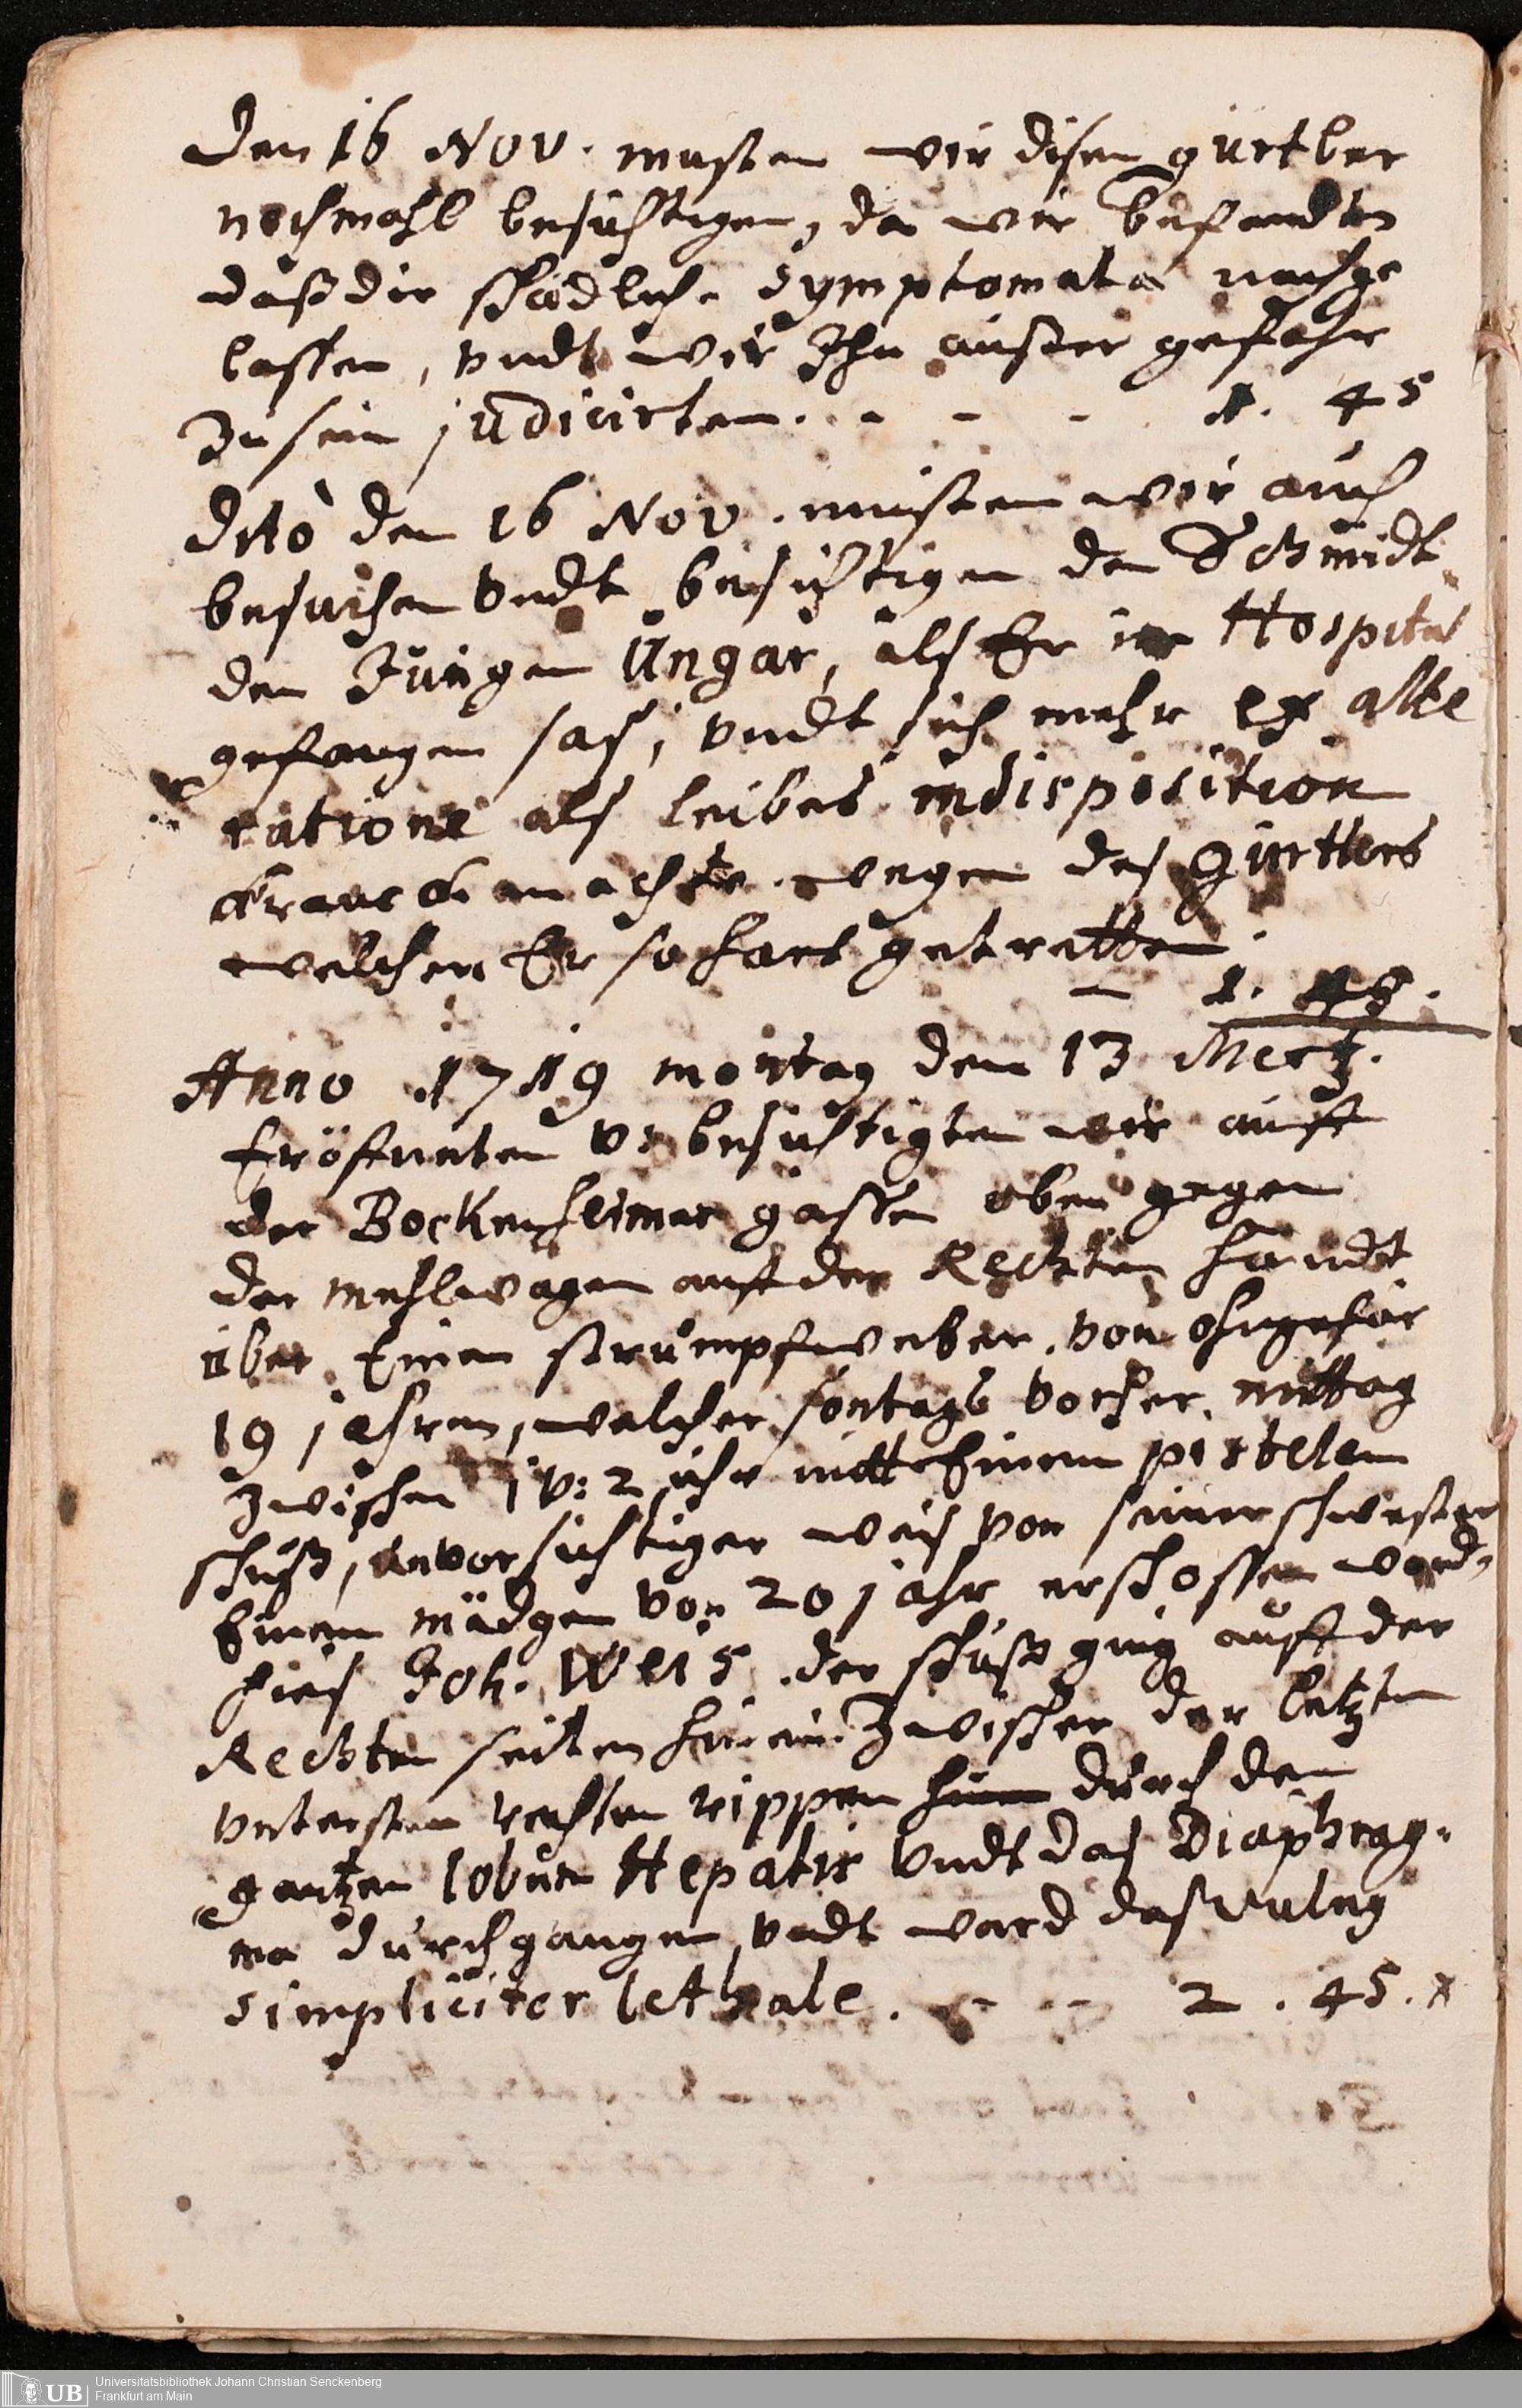 den 16 Nov. musten wir disen gürtler
nochmahl besichtigen, da wir befandten
daß die schädliche Symptomata nachge
lassen, vndt wir Ihn auster gefahr
Zu sein judicirten. - - - 1. 45
dito den 16 Nov. musten wir auch
besuchen vndt besichtigen den Schmidt
den Jungen Ungar, als Er im Hospital
gefangen saß, vndt sich mehr ex alte
ratione als leibes indisposition
kranck machte wegen des gürtlers
welchen Er so hart getretten.
- 1. 45.
Anno 1719 montag den 13 Mertz.
Eröfneten v: besichtigten wir auff
der Bockenheimer gassen oben gegen
der mehlwagen auf der Rechten handt
über Einen strumpfweber von ohngefär
19 jahren, welcher sontags vorher mittag
zwischen 1 v: 2 uhr mitt Einem pistolen
schuß, unvorsichtiger weiß von seiner schwester
Einem mädgen von 20 jahr erschossen word,
hieß Joh. Weis. der schuß ging auff der
Rechten seiten hinein zwischen der letzten
vntersten rechten rippen durch den
gantzen lobum Hepatis vndt das Diaphrag-
ma durchgangen, vndt ward das vulnus
simpliciter lethale. - - 2. 45. x
Universitätsbibliothek Johann Christian Senckenberg
Frankfurt am Main
UB